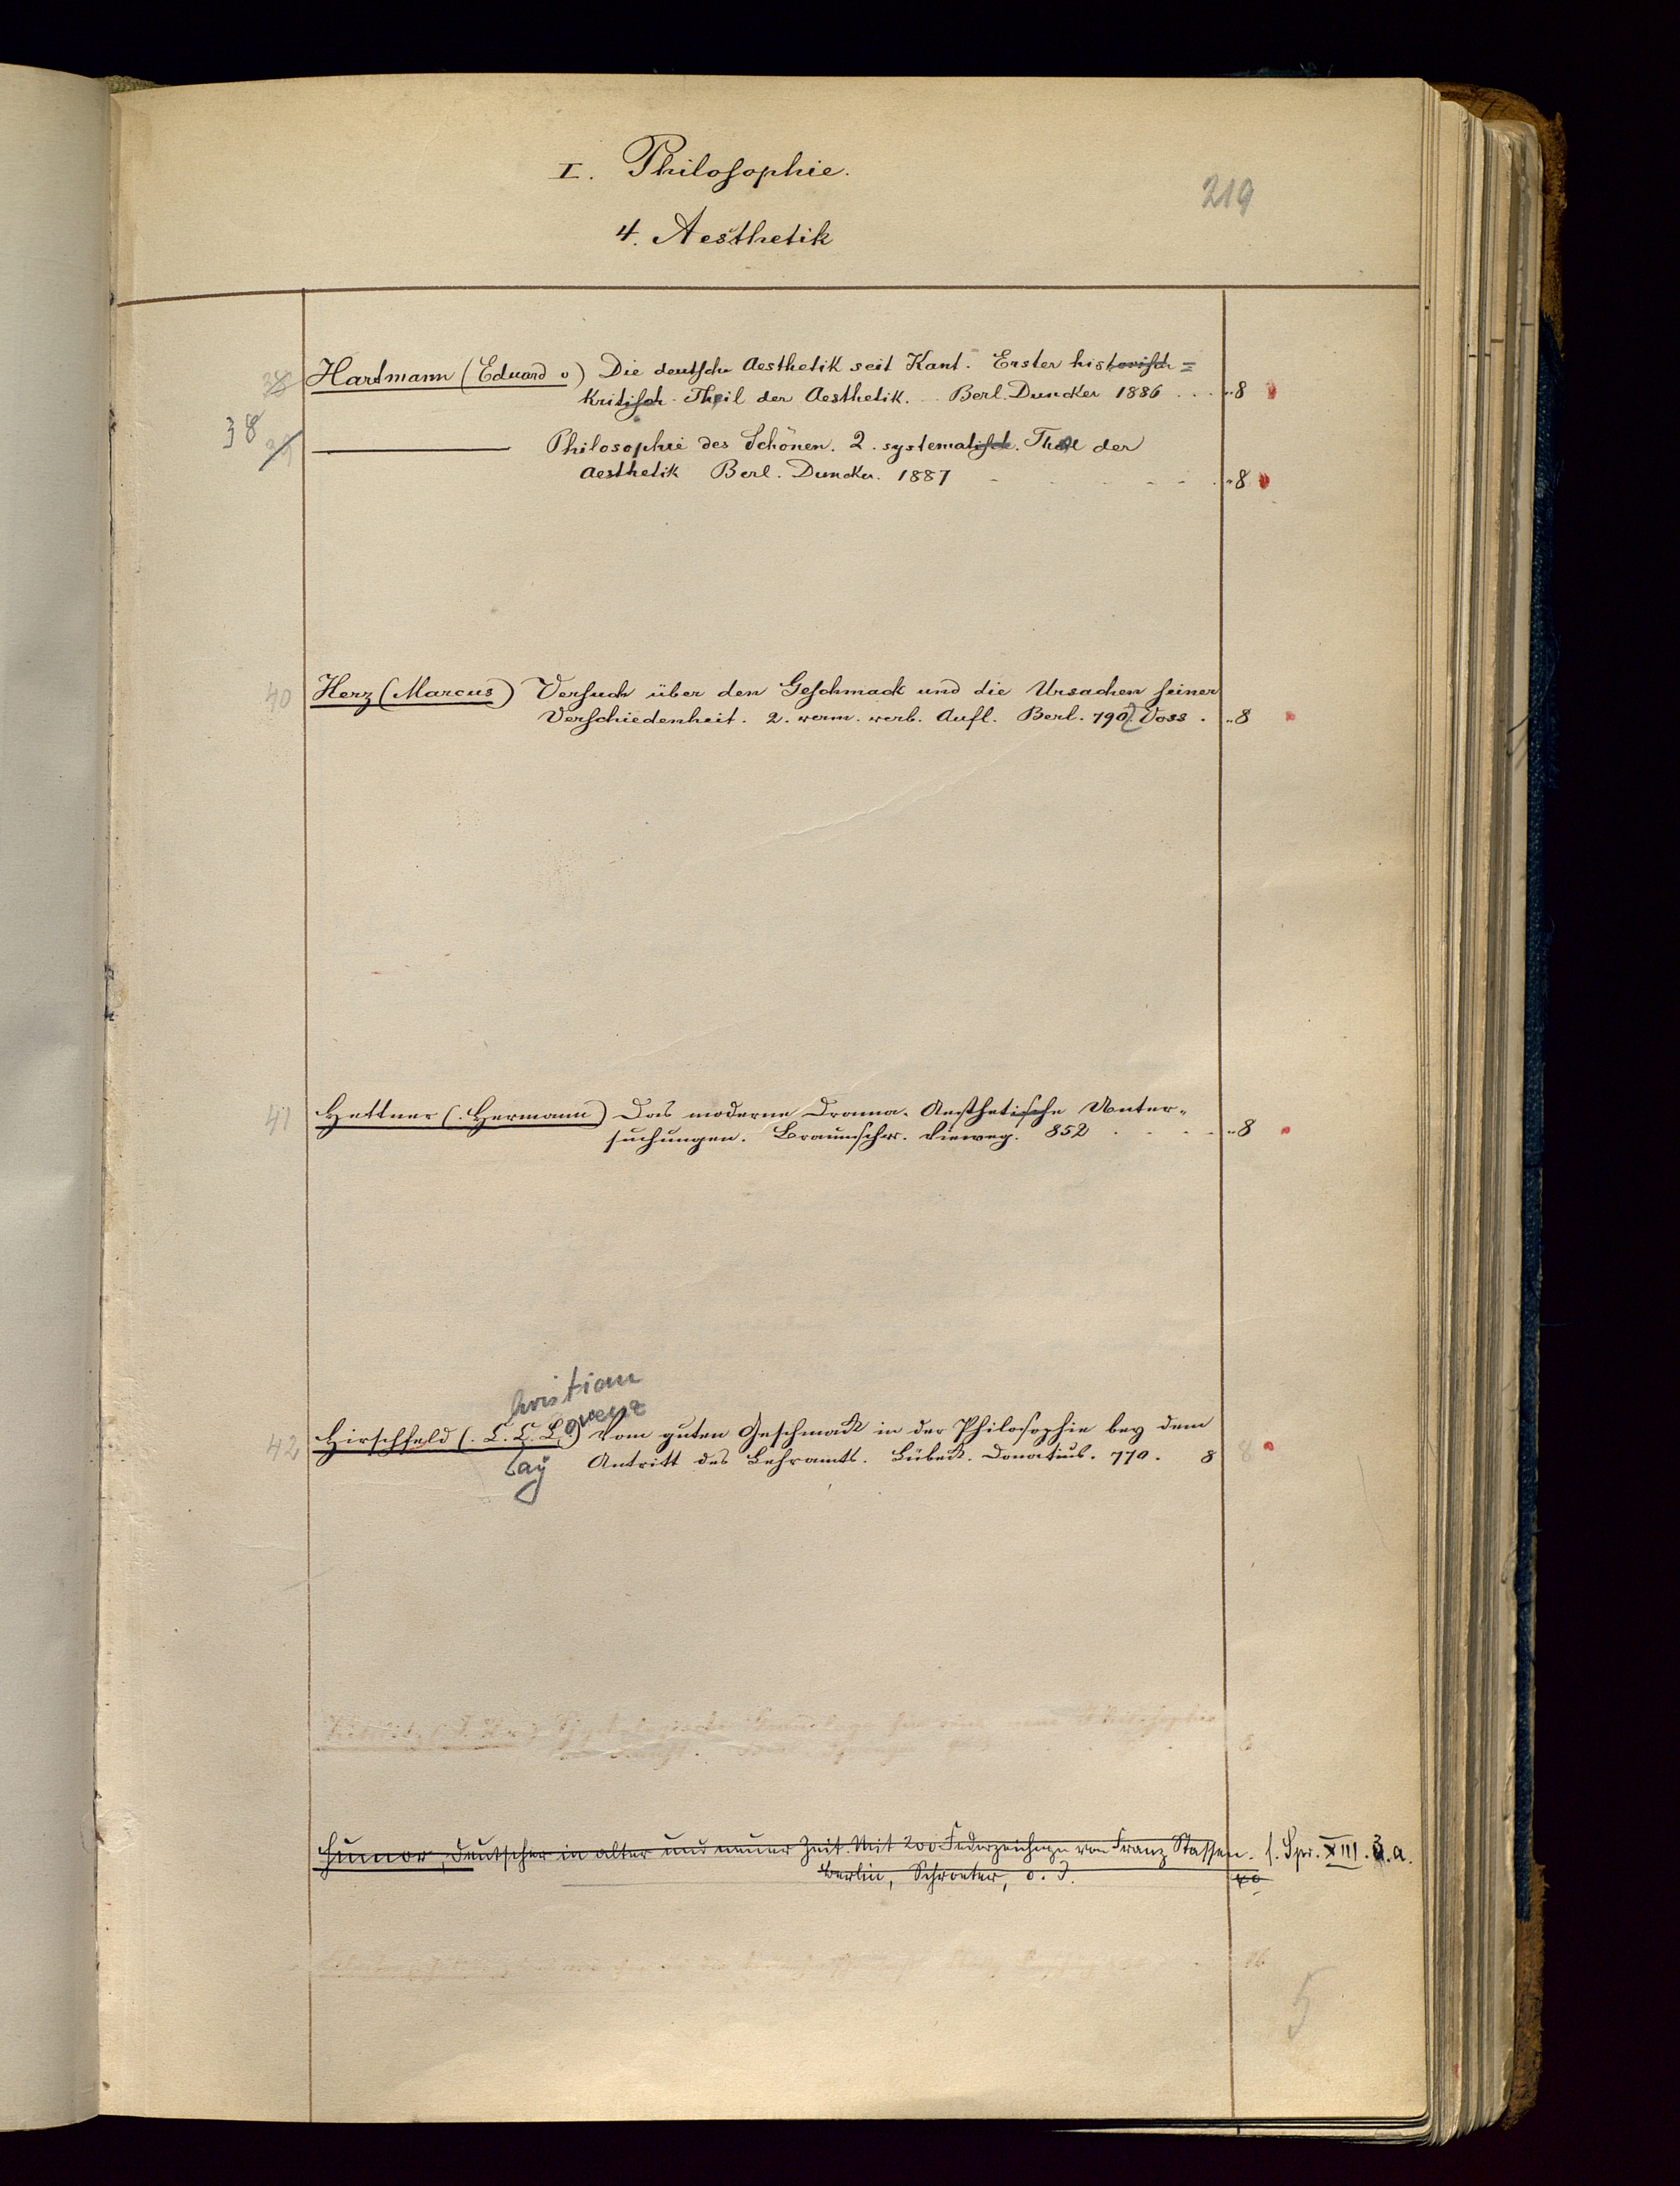 I. Philosophie.
219
4. Aesthetik
38 Hartmann (Eduard v) Die deutsche Aesthetik seit Kant. Erster historisch=
kritisch Theil der Aesthetik. Berl. Duncker 1886 . . . " 8
38 39 ——— Philosophie des Schönen. 2. systematisch. Theil der
Aesthetik Berl. Duncker. 1887 . . . . " 8
40 Herz (Marcus) Versuch über den Geschmack und die Ursachen seiner
Verschiedenheit. 2. verm. verb. Aufl. Berl. 790 Voss . " 8
41 Hettner (Hermann) Das moderne Drama. Aesthetische Unter-
suchungen. Braunschw. Vieweg. 852 . . . . " 8
hristian
orenz
42 Hirschfeld (C. C. L.) Vom guten Geschmack in der Philosophie bey dem
Antritt des Lehramts. Lübeck. Donatius. 770. 8 8
Cay
Philosophie
Humor, deutscher in alter und neuer Zeit. Mit 200 Federzeichngn von Franz Stassen. s. Spr. XIII. 3. a.
Berlin, Schroeter, o. J. 40
5